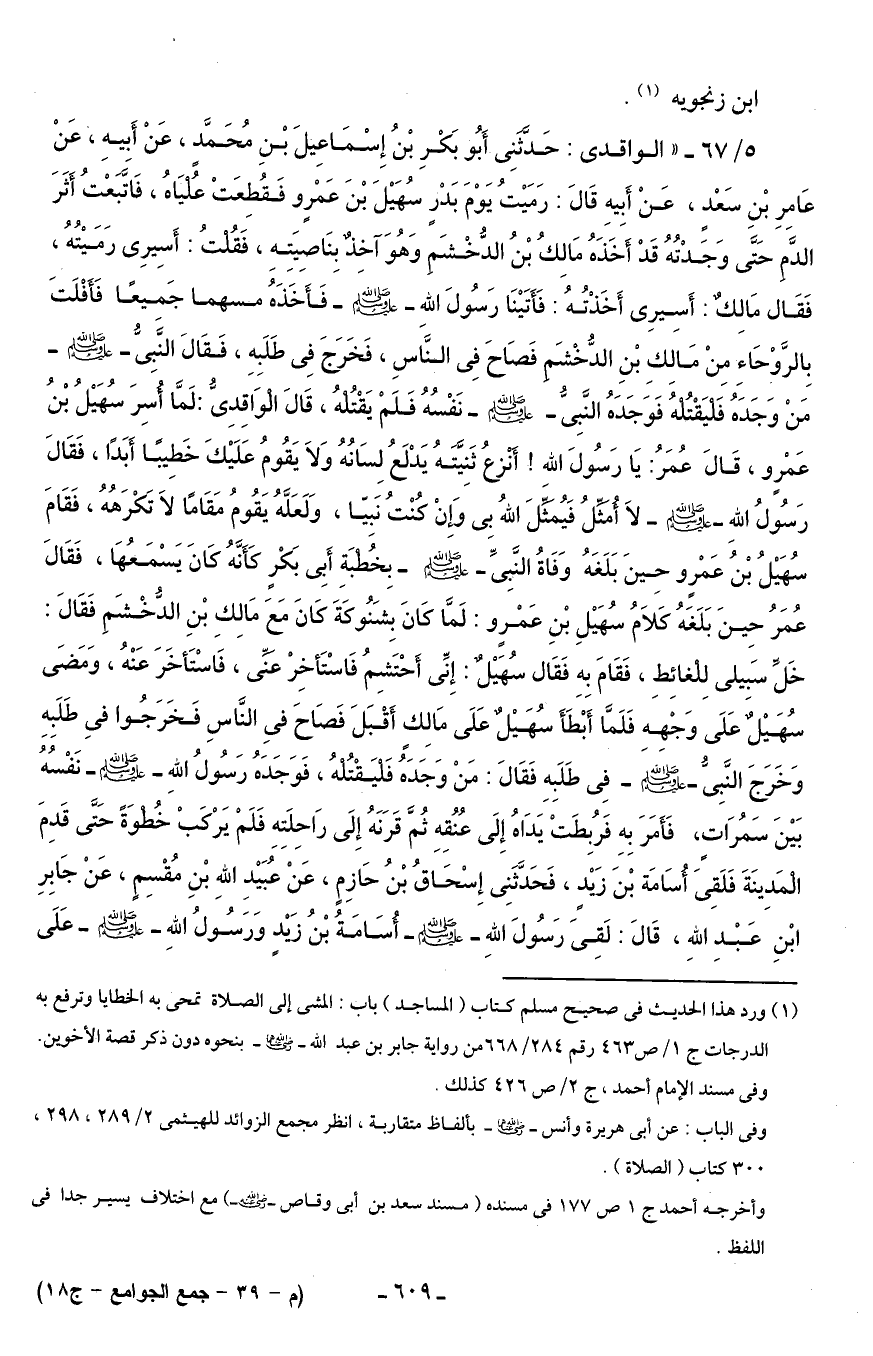 ابن زنجويه (١) .
٥/ ٦٧ ـ « الـواقـدى : حَـدَّثَنِى أَبُو بَكْـرِ بْنُ إِسْـمَـاعيلَ بْـنِ مُـحَمَّدٍ ، عَنْ أَبِيـهِ ، عَنْ
عَامِرِ بْنِ سَعْدٍ ، عَـنْ أَبِيهِ قَالَ : رَمَيْتُ يَوْمَ بَدْرٍ سُهَيْلَ بْنَ عَمْرٍو فَـقُطعَتْ عُلْيَاهُ ، فَاتَّبَعْتُ أَثَرَ
الدَّمِ حَتَّى وَجَـدْتُهُ قَدْ أَخَذَهُ مَالكُ بْنُ الدُّخْـشَمِ وَهُوَ آخذٌ بنَاصِيَتـهِ ، فَقُلْتُ : أَسيرِى رَمَـيْتُهُ ،
فَقَـال مَالكٌ : أَسيرِى أَخَذْتُـهُ : فَأَتَيْنَا رَسُولَ الله ـ ﷺ ـ فَـأَخَذَهُ مـسهما جَميعًـا فَأَفْلَتَ
بِالرَّوْحَاءِ مِنْ مَـالك بْنِ الدُّخْشَمِ فَصَاحَ فِى الـنَّاسِ ، فَخَرَجَ فِى طَلَبِهِ ، فَـقَالَ النَّبِىُّ ـ ﷺ ـ
مَنْ وَجَدَهُ فَلْيَقْتُلْهُ فَوَجَدَهُ النَّبِىُّ ـ ﷺ ـ نَفْسُهُ فَـلَمْ يَقْتُلْهُ ، قَالَ الْوَاقدىُّ :لَمَّا أُسرَ سُهَيْلُ بْنُ
عَمْرٍو ، قَـالَ عُمَرُ: يَا رَسُولَ الله ! أَنْزعُ ثَنِيَّتَـهُ يَدْلَعُ لسَانُهُ وَلاَ يَقُومُ عَلَيْكَ خَطيبًـا أَبَدًا ، فَقَالَ
رَسُولُ الله ـ ﷺ ـ لاَ أُمَثِّلُ فَيُمَثِّلَ اللهُ بِى وَإِنْ كُنْتُ نَبيّـا ، وَلَعَلَّهُ يَقُومُ مَقَامًا لاَ تَكْرَهُهُ ، فَقَامَ
سُهَيْلُ بْنُ عَمْرو حـينَ بَلَغَهُ وَفَاةُ النَّبِىِّ ـ ﷺ ـ بِخُطْبَةِ أَبِى بَكْرٍ كَأَنَّهُ كَانَ يَسْمَـعُهَا ، فَقَالَ
عُمَرُ حيـنَ بَلَغَهُ كَلاَمُ سُهَيْلِ بْنِ عَمْـرو : لَمَّا كَانَ بِشَنُوكَةَ كَانَ مَعَ مَالِك بْنِ الدُّخْـشَمِ فَقَالَ :
خَلِّ سَبِيلى للْغَائط ، فَقَامَ بِه فَقَال سُهَيْلٌ : إِنِّى أَحْتَشمُ فَاسْتَأْخِرْ عَنِّى ، فَاسْتَأْخَرَ عَنْهُ ، وَمَضَى
سُهَـيْلٌ عَلَى وَجْهِـه فَلَمَّا أَبْطَأَ سُهَـيْلٌ عَلَى مَالك أَقْبَلَ فَصَاحَ فِى النَّاسِ فَـخَرَجُـوا فِى طَلَبِهِ
وَخَرَجَ النَّبِىُّ ـ ﷺ ـ فِى طَلَبِه فَقَالَ : مَنْ وَجَدَهُ فَلْيَـقْتُلْهُ ، فَوَجَدَهُ رَسُولُ الله ـ ﷺ ـ نَفْسُهُ
بَيْنَ سَمُرَاتٍ، فَأَمَرَ بِهِ فَرُبِطَتْ يَدَاهُ إِلَى عُنُقِهِ ثُمَّ قَرَنَهُ إِلَى رَاحِلَتِهِ فَلَمْ يَرْكَبْ خُطْوَةً حَتَّى قَدِمَ
الْمَدينَةَ فَلَقِىَ أُسَامَةَ بْنَ زَيْدٍ ، فَحَدَّثَنِى إِسْحَاقُ بْنُ حَازِمٍ ، عَنْ عُبَيْدِ الله بْنِ مُقْسمٍ ، عَنْ جَابِرِ
ابْنِ عَـبْـدِ الله ، قَالَ : لَقِـىَ رَسُولَ الله ـ ﷺ ـ أُسَـامَـةُ بْنُ زَيْدٍ وَرَسُـولُ الله ـ ﷺ ـ عَلَى
(١) ورد هذا الحديث فى صحيح مسلم كـتاب ( المساجـد ) باب : المشى إلى الصـلاة تمحى به الخطايا وترفع به
الدرجات ج ١/ ص٤٦٣ رقم ٢٨٤/ ٦٦٨من رواية جابر بن عبد الله ـ رضي الله عنهما ـ بنحوه دون ذكر قصة الأخوين.
وفى مسند الإمام أحمد ، ج ٢/ ص ٤٢٦ كذلك .
وفى الباب : عن أبى هريرة وأنس ـ رضي الله عنهما ـ بألفـاظ متقاربـة ، انظر مجمع الزوائد للهيثمى ٢/ ٢٨٩ ، ٢٩٨ ،
٣٠٠ كتاب ( الصلاة ) .
وأخرجـه أحمد ج ١ ص ١٧٧ فى مسنده ( مـسند سعد بن أبى وقـاص ـ رضي الله عنه ـ) مع اختلاف يسيـر جدا فى
اللفظ .
ـ ٦٠٩ ـ (م - ٣٩ - جمع الجوامع - ج١٨)